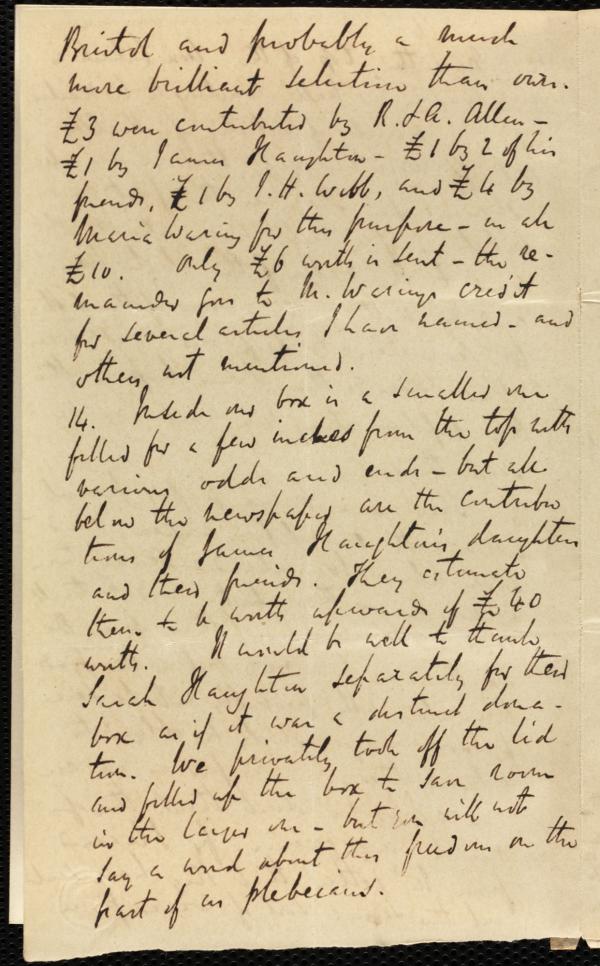 Bristol and probably a much
more brilliant selection than ours.
£3 were contributed by R. & A. Allen –
£1 by James Haughton – £1 by 2 of his
friends, £1 by J. H. Webb, and £4 by
Maria Waring for this purpose – in all
£10. Only £6 worth is sent – the re-
mainder goes to M. Waring's credit
for several articles I have named – and
others not mentioned.
14. Inside our box is a smaller one
filled for a few inches from the top with
various odds and ends – but all
below the newspaper are the contribu
tions of James Haughton's daughters
and their friends. They estimate
them to be worth upwards of £40
worth. It would be well to thank
Sarah Haughton separately for their
box as if it was a distinct dona-
tion. We privately took off the lid
and filled up the box to save room
in the larger one – but you will not
say a word about this freedom on the
part of us plebeians.